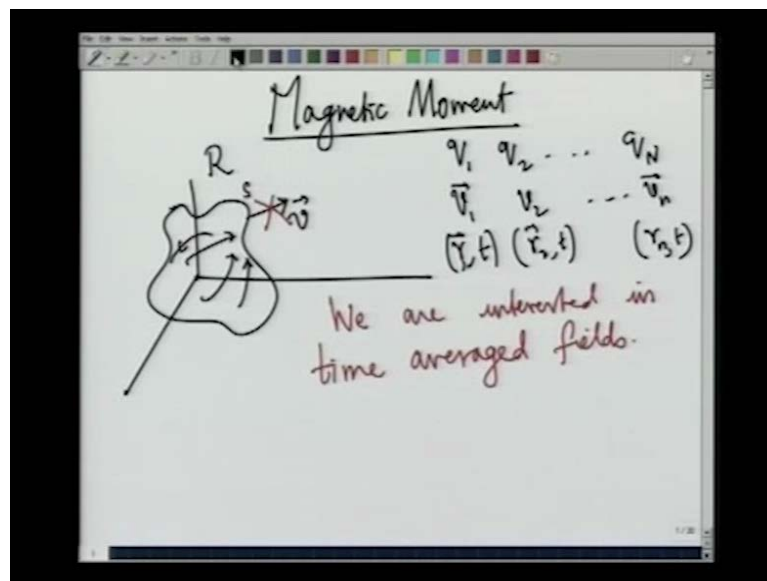 File Edit View Insert Actions Tools Help
Magnetic Moment
R
S
v⃗
q₁ q₂ ... q_N
v⃗₁ v₂ ... v⃗ₙ
(r⃗₁,t) (r⃗₂,t) (rₙ,t)
We are interested in
time averaged fields.
1/20